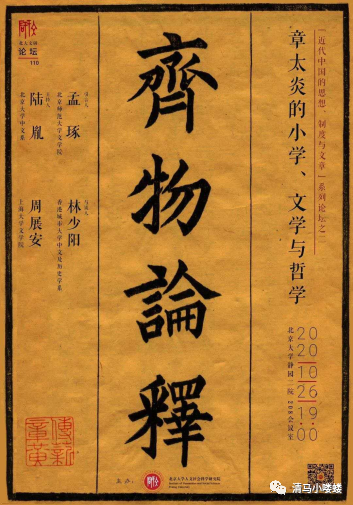 「近代中国的思想、制度与文章」系列论坛之二
章太炎的小学、文学与哲学
2020
10 26
19:00
北京大学静园二院 208会议室
齊物論釋
论坛
110
主讲人
孟琢
北京师范大学文学院
主持人
陆胤
北京大学中文系
与谈人
林少阳
香港城市大学中文及历史学系
周展安
上海大学文学院
主办：
北京大学人文社会科学研究院
清马小喽喽